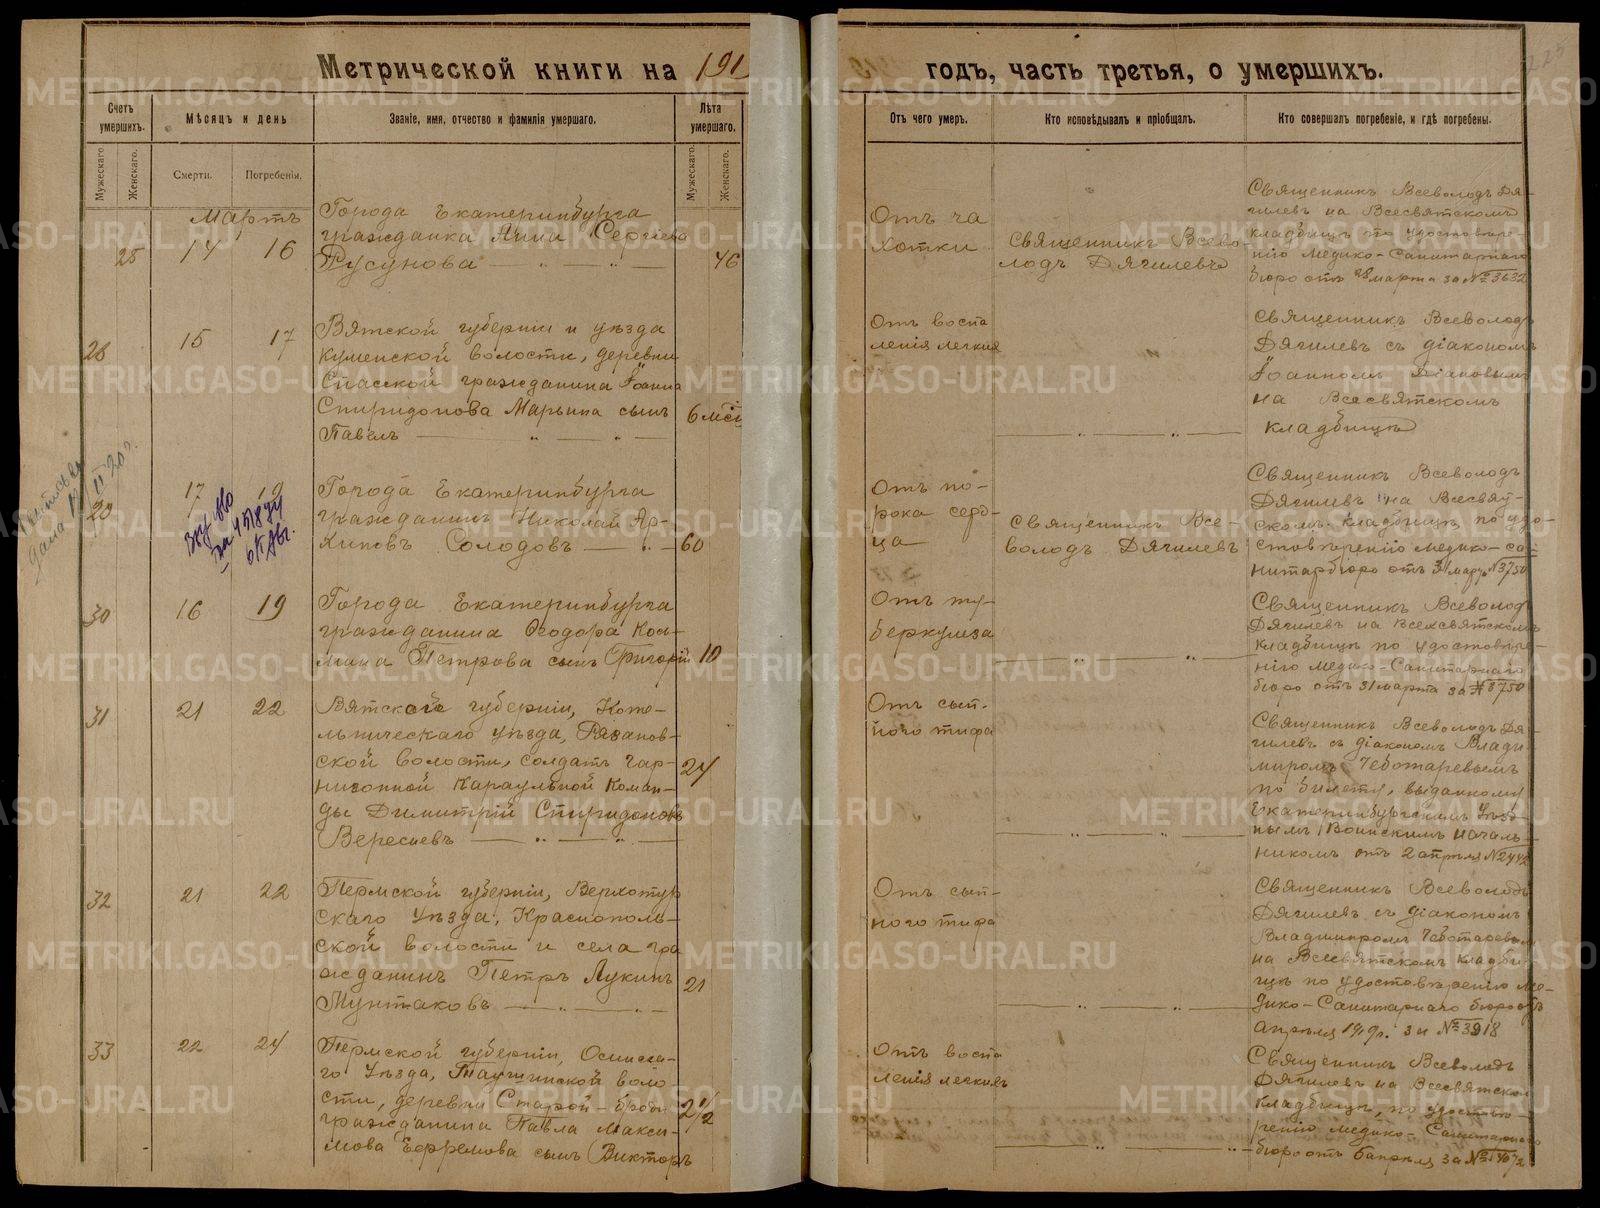 Метрической книги на 191
годъ, часть третья, о умершихъ.
Счетъ умершихъ.
Мѣсяцъ и день
Званіе, имя, отчество и фамилія умершаго.
Лѣта умершаго.
Отъ чего умеръ.
Кто исповѣдывалъ и пріобщалъ.
Кто совершалъ погребеніе, и гдѣ погребены.
Мужескаго.
Женскаго.
Смерти.
Погребенія.
Мужескаго.
Женскаго.
Мартъ
25 14 16
Города Екатеринбурга
гражданка Анна Сергѣева
Русунова
46
Отъ ча
хотки
Священникъ Всево
лодъ Дягилевъ
Священникъ Всеволодъ Дя-
гилевъ на Всесвятскомъ
кладбищѣ по удостовѣре-
нію Медико-Санитарнаго
бюро отъ 28 марта за № 3632
28 15 17
Вятской губерніи и уѣзда
Куменской волости, деревни
Спасской гражданина Іоанна
Спиридонова Марьина сынъ
Павелъ
6 мѣс
Отъ воспа
ленія легкихъ
Священникъ Всеволодъ
Дягилевъ съ діакономъ
Іоанномъ Діаковымъ
на Всесвятскомъ
кладбищѣ
29 17 19
дана 11/II 20 г.
Города Екатеринбурга
гражданинъ Николай Ар-
хиповъ Солодовъ
60
Отъ по-
рока серд-
ца
Священникъ Все-
володъ Дягилевъ
Священникъ Всеволодъ
Дягилевъ на Всесвят-
скомъ кладбищѣ по удо-
стовѣренію медико-са-
нитарбюро отъ 31 марта № 3750
30 16 19
Города Екатеринбурга
гражданина Ѳеодора Кось-
мина Петрова сынъ Григорій
10
Отъ ту-
беркулеза
Священникъ Всеволодъ
Дягилевъ на Всехсвятскомъ
кладбищѣ по удостовѣре-
нію Медико-Санитарнаго
бюро отъ 31 марта за № 3750
31 21 22
Вятской губерніи, Коте-
льническаго уѣзда, Рязанов-
ской волости, солдатъ гар-
низонной караульной Коман-
ды Димитрій Спиридоновъ
Вересневъ
24
Отъ сып-
ного тифа
Священникъ Всеволодъ Дя-
гилевъ съ діакономъ Влади
миромъ Чеботаревымъ
по билету, выданному
Екатеринбургскимъ Уѣзд-
нымъ Воинскимъ началь-
никомъ отъ 2 апрѣля № 2442
32 21 22
Пермской губерніи, Верхотур
скаго Уѣзда, Краснополь-
ской волости и села гра
жданинъ Петръ Лукинъ
Мунтаковъ
21
Отъ сып-
ного тифа
Священникъ Всеволодъ
Дягилевъ съ діакономъ
Владимиромъ Чеботаревымъ
на Всесвятскомъ кладби-
щѣ по удостовѣренію Ме-
дико-Санитарнаго бюро отъ
апрѣля 1919 г. за № 3918
33 22 24
Пермской губерніи, Осинска-
го Уѣзда, волo
сти, деревни Старой-броды
гражданина Павла Макси-
мова Ефремова сынъ Викторъ
2 1/2
Отъ воспа
ленія легкихъ
Священникъ Всеволодъ
Дягилевъ на Всесвятском
кладбищѣ, по удостовѣ-
ренію медико-Санитарнаго
бюро отъ 6 апрѣля за № 4072
METRIKI.GASO-URAL.RU